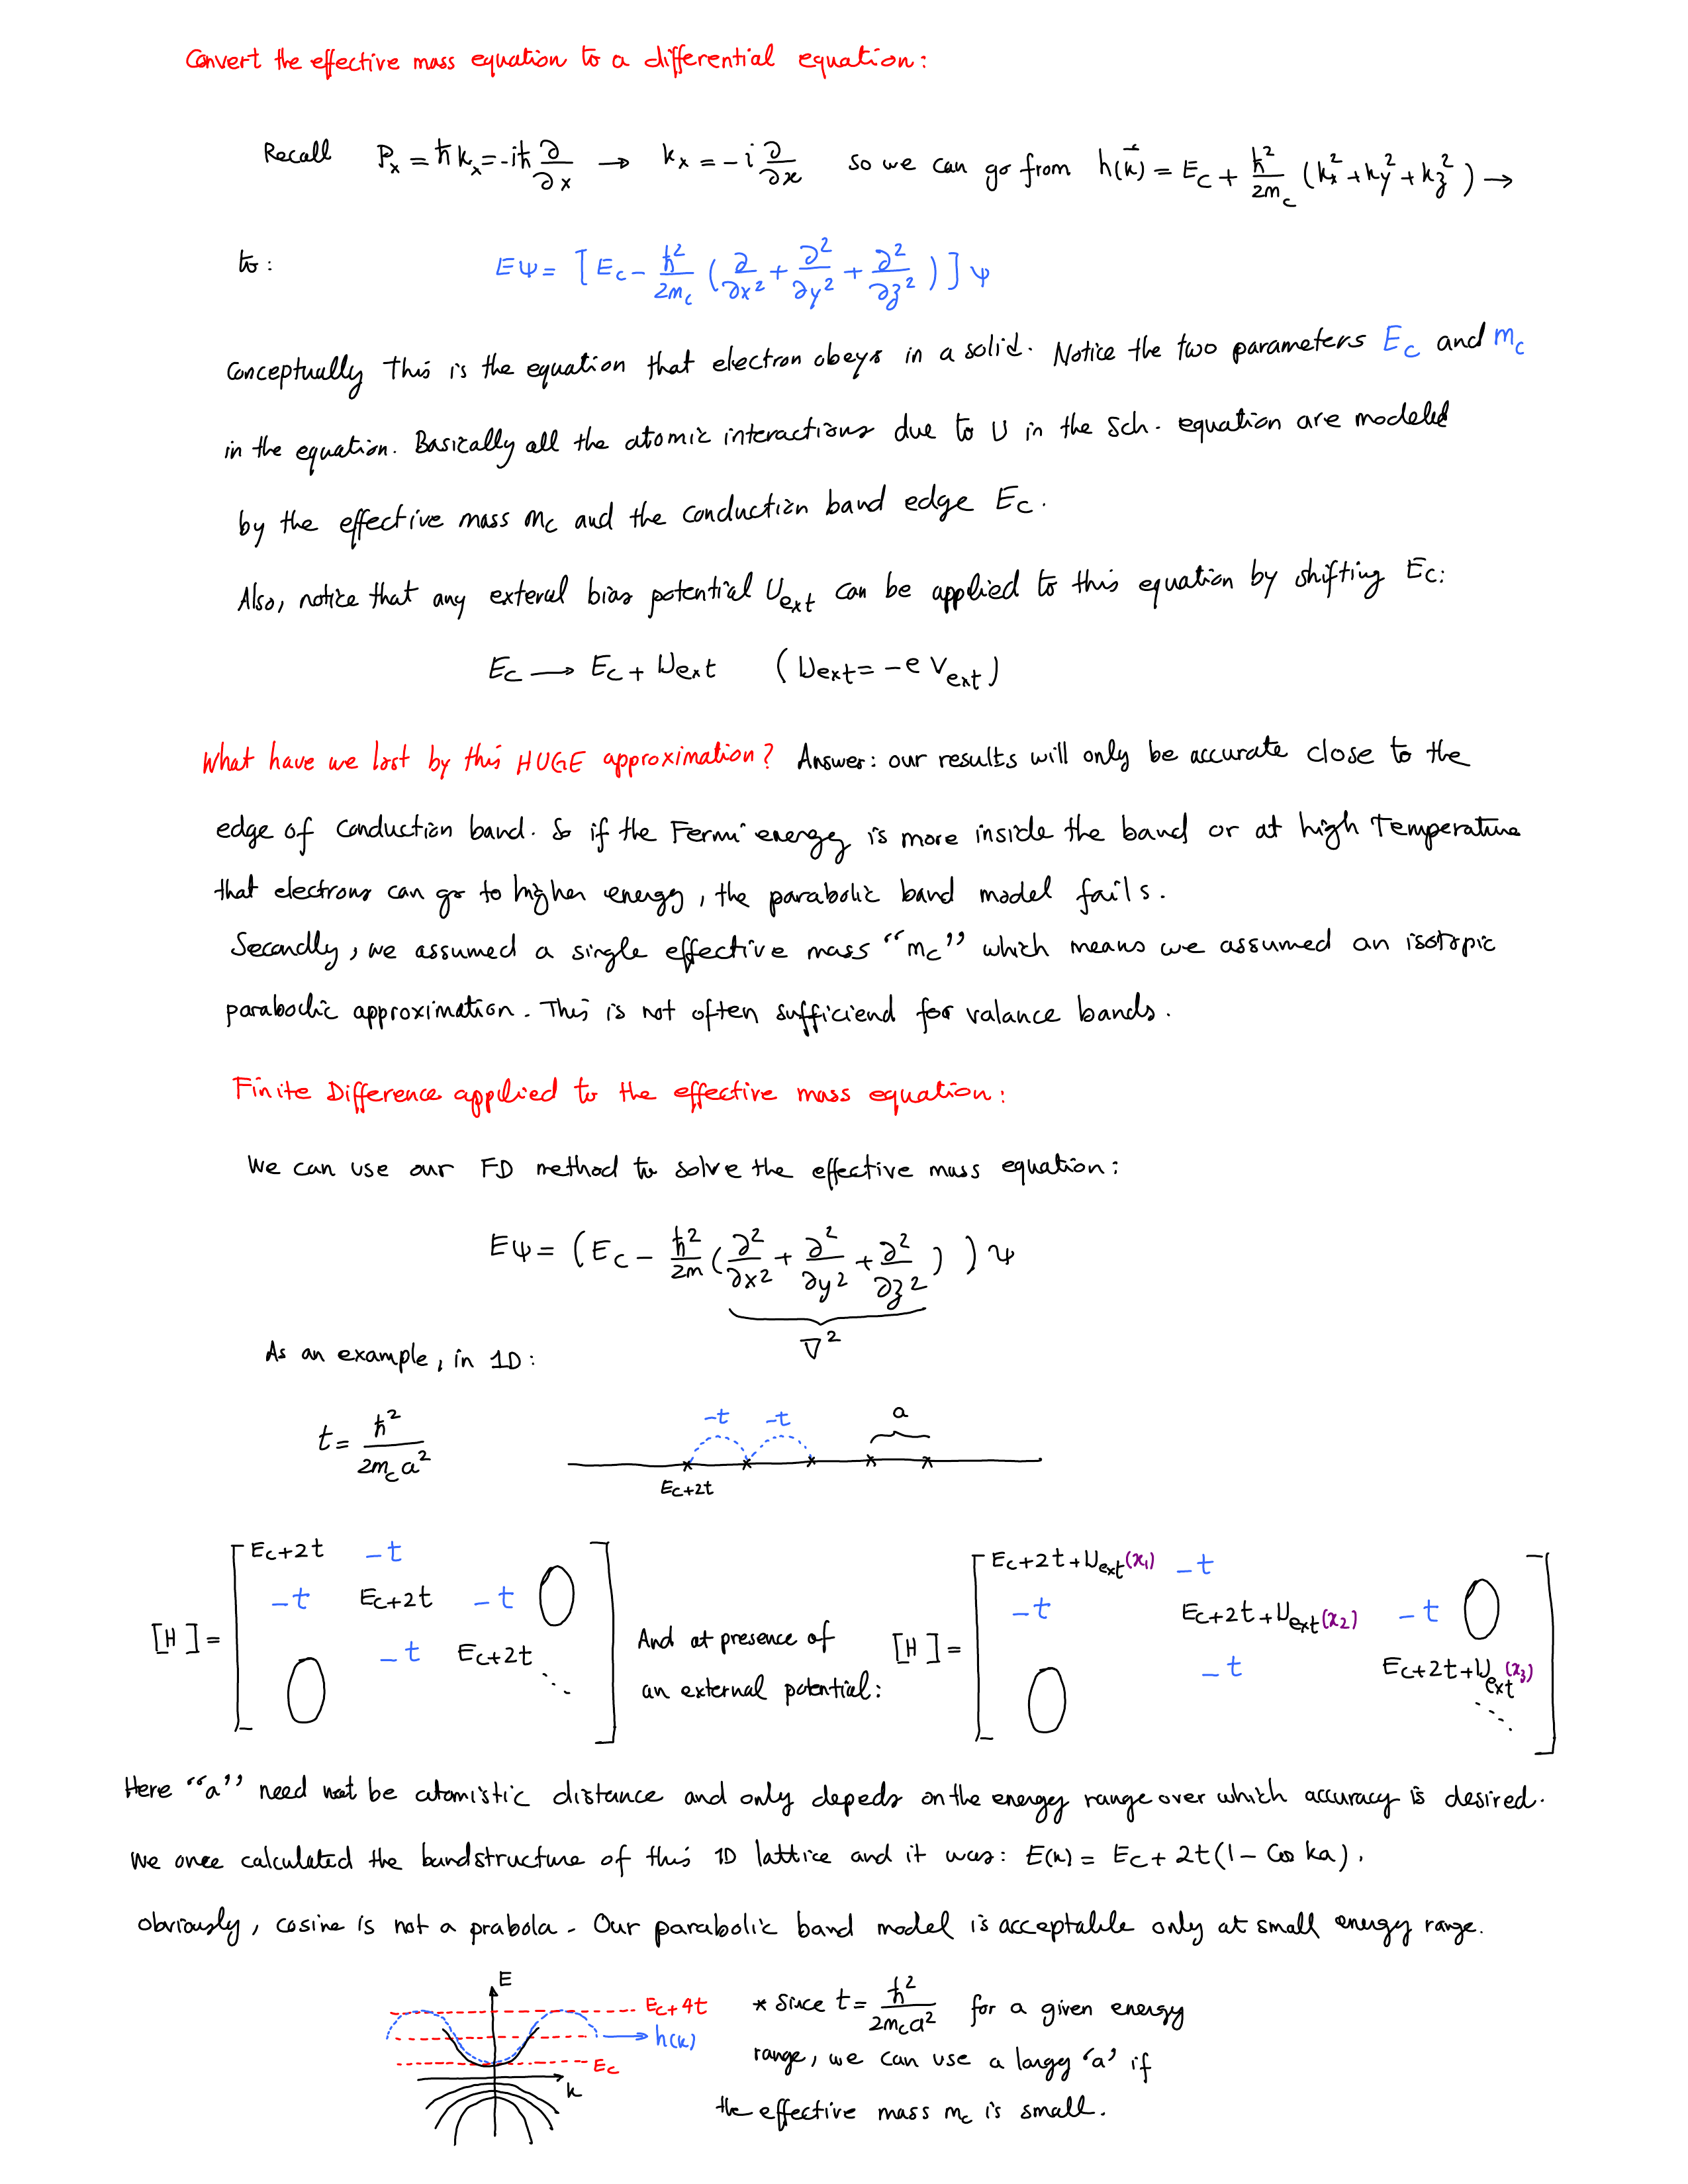 Convert the effective mass equation to a differential equation:
Recall Pₓ = ħkₓ = -iħ ∂/∂x → kₓ = -i ∂/∂x so we can go from h(k⃗) = E_C + ħ²/2m_c (kₓ² + k_y² + k_z²) →
to: Eψ = [E_C - ħ²/2m_c (∂/∂x² + ∂²/∂y² + ∂²/∂z²)] ψ
Conceptually this is the equation that electron obeys in a solid. Notice the two parameters E_C and m_c
in the equation. Basically all the atomic interactions due to U in the Sch. equation are modeled
by the effective mass m_c and the conduction band edge E_C.
Also, notice that any exteral bias potential U_ext can be applied to this equation by shifting E_C:
E_C → E_C + U_ext (U_ext = -e V_ext)
What have we lost by this HUGE approximation? Answer: our results will only be accurate close to the
edge of conduction band. So if the Fermi energy is more inside the band or at high Temperature
that electrons can go to higher energy, the parabolic band model fails.
Secondly, we assumed a single effective mass "m_c" which means we assumed an isotopic
parabolic approximation. This is not often sufficiend for valance bands.
Finite Difference applied to the effective mass equation:
We can use our FD method to solve the effective mass equation:
Eψ = (E_C - ħ²/2m (∂²/∂x² + ∂²/∂y² + ∂²/∂z²)) ψ
∇²
As an example, in 1D:
t = ħ²/2m_c a²
-t -t a
E_C+2t
[H] = [E_C+2t -t
-t E_C+2t -t 0
0 -t E_C+2t ⋱]
And at presence of
an external potential:
[H] = [E_C+2t+U_ext(x₁) -t
-t E_C+2t+U_ext(x₂) -t 0
0 -t E_C+2t+U_ext(x₃) ⋱]
Here "a" need not be atomistic distance and only depeds on the energy range over which accuracy is desired.
We once calculated the bandstructure of this 1D lattice and it was: E(k) = E_C + 2t(1 - Cos ka).
obviously, cosine is not a prabola. Our parabolic band model is acceptable only at small energy range.
E
E_C+4t
h(k)
E_C
k
* Since t = ħ²/2m_c a² for a given energy
range, we can use a largy 'a' if
the effective mass m_c is small.